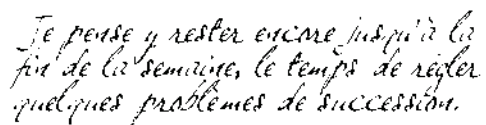 Je pense y rester encore jusqu'à la
fin de la semaine, le temps de régler
quelques problèmes de succession.